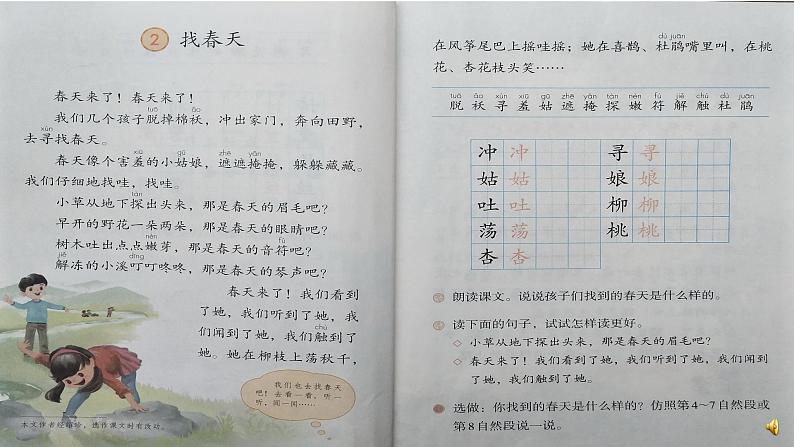 2 找春天
春天来了！春天来了！
tuō ǎo
我们几个孩子脱掉棉袄，冲出家门，奔向田野，
xún
去寻找春天。
xiū gū zhē yǎn
春天像个害羞的小姑娘，遮遮掩掩，躲躲藏藏。
我们仔细地找哇，找哇。
tàn
小草从地下探出头来，那是春天的眉毛吧？
早开的野花一朵两朵，那是春天的眼睛吧？
nèn fú
树木吐出点点嫩芽，那是春天的音符吧？
jiě dīng
解冻的小溪叮叮咚咚，那是春天的琴声吧？
春天来了！我们看到
了她，我们听到了她，我
chù
们闻到了她，我们触到了
她。她在柳枝上荡秋千，
我们也去找春天
吧！去看一看，听一
听，闻一闻……
本文作者经绍珍，选作课文时有改动。
dù juān
在风筝尾巴上摇哇摇；她在喜鹊、杜鹃嘴里叫，在桃
花、杏花枝头笑……
tuō ǎo xún xiū gū zhē yǎn tàn nèn fú jiě chù dù juān
脱 袄 寻 羞 姑 遮 掩 探 嫩 符 解 触 杜 鹃
冲 冲 寻 寻
姑 姑 娘 娘
吐 吐 柳 柳
荡 荡 桃 桃
杏 杏
朗读课文。说说孩子们找到的春天是什么样的。
读下面的句子，试试怎样读更好。
◇ 小草从地下探出头来，那是春天的眉毛吧？
◇ 春天来了！我们看到了她，我们听到了她，我们闻到
了她，我们触到了她。
选做：你找到的春天是什么样的？仿照第4~7自然段或
第8自然段说一说。